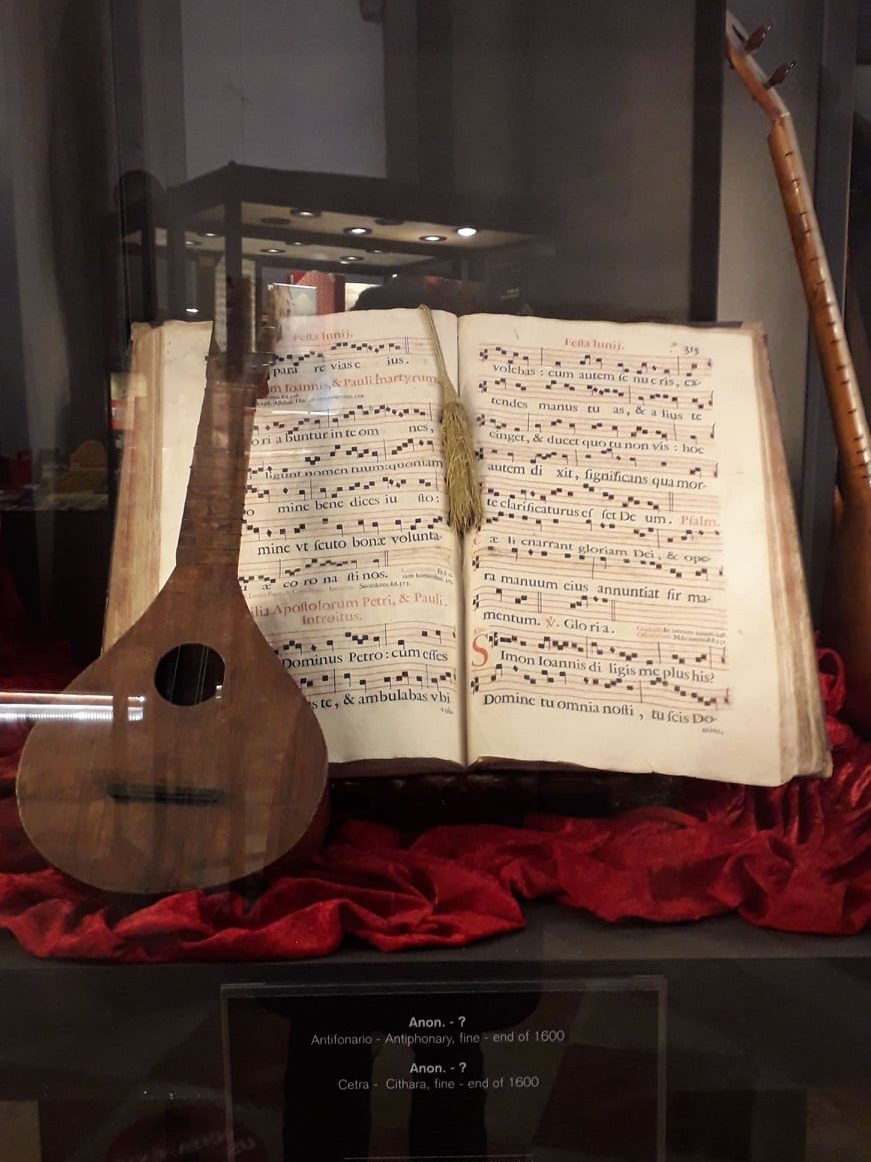 Festa Iunij.
pani re vias e ius.
m Ioannis, & Pauli martyrum
o ri a buntur in te om nes,
ligunt nomen tuum: quoniam
mine bene dices iu sto:
mine vt scuto bonæ volunta-
æ co ro na sti nos.
ilia Apostolorum Petri, & Pauli.
Introitus.
Dominus Petro: cum esses
s te, & ambulabas vbi
vole-
Festa Iunij. 319
volebas: cum autem se nu e ris, ex-
tendes manus tu as, & a lius te
cinget, & ducet quo tu non vis: hoc
autem di xit, significans qua mor-
te clarificaturus es set De um. Psalm.
C æ li enarrant gloriam Dei, & ope-
ra manuum eius annuntiat fir ma-
mentum. ℣. Gloria.
Simon Ioannis di ligis me plus his?
Domine tu omnia nosti, tu scis Do-
Anon. - ?
Antifonario - Antiphonary, fine - end of 1600
Anon. - ?
Cetra - Cithara, fine - end of 1600